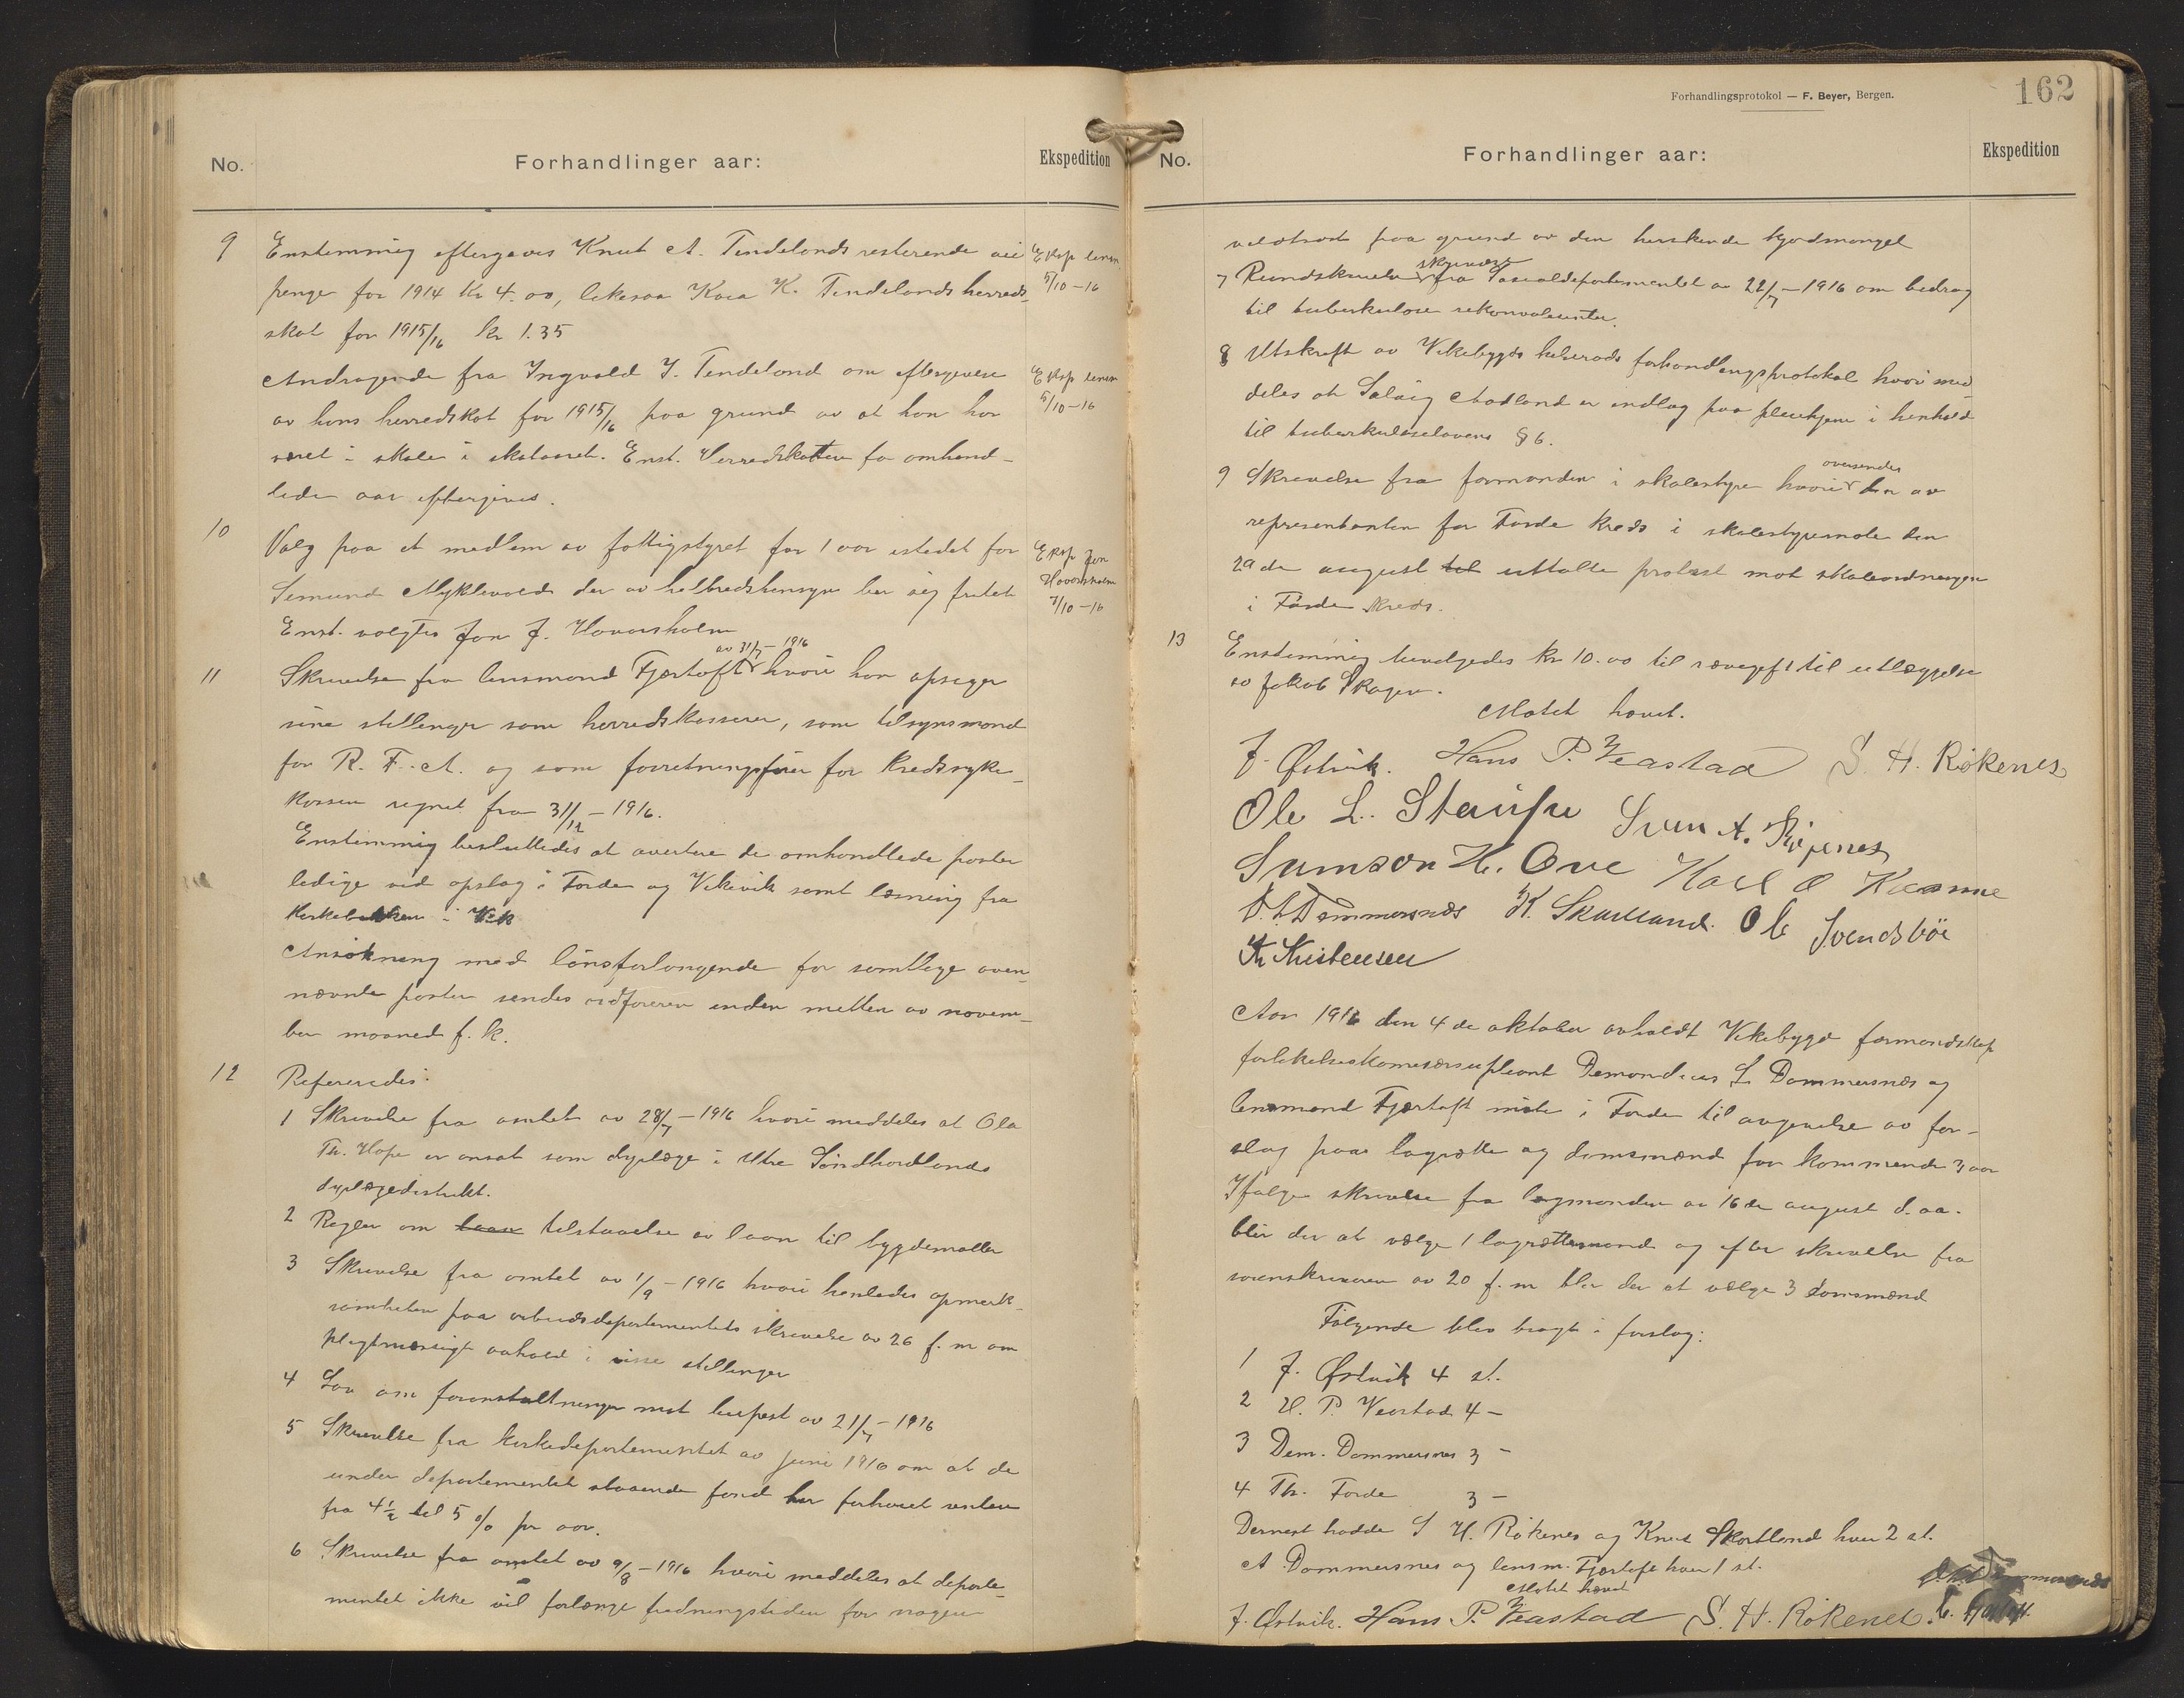 No.
Forhandlinger aar:
Ekspedition
9
Enstemmig eftergaves Knut A. Tindelands resterende vei
penge for 1914 Kr 4.00, likesaa Kaia K. Tindelands herreds
skat for 1915/16 kr 1.35
Eksp lensm
5/10-16
Andragende fra Ingvald J. Tindeland om eftergivelse
av hans herredskat for 1915/16 paa grund av at han har
været i skole i skataaret. Enst. Herredskatten for omhand-
lede aar eftergives.
Eksp lensm
5/10-16
10
Valg paa et medlem av fattigstyret for 1 aar istedet for
Semund Myklevold der av helbredshensyn ber sig fritat
Enst. valgtes Jon J. Hovarsholm
Eksp Jon
Hovarsholm
7/10-16
11
Skrivelse fra lensmand Fjærtoft av 31/7-1916 hvori han opsiger
sine stillinger som herredskasserer, som tilsynsmand
for R. F. A. og som forretningsfører for Kredssyke-
kassen regnet fra 31/12-1916.
Enstemmig besluttedes at avertere de omhandlede poster
ledige ved opslag i Førde og Vikevik samt læsning fra
Kirkebakken i Vik
Ansøkning med lønsforlangende for samtlige oven-
nævnte poster sendes ordføreren inden midten av novem-
ber maaned f. k.
12
Refereredes:
1 Skrivelse fra amtet av 28/7-1916 hvori meddeles at Ola
Th. Hope er ansat som dyrlæge i Ytre Søndhordlands
dyrlægedistrikt.
2 Regler om laan tilstaaelse av laan til bygdemøller
3 Skrivelse fra amtet av 1/9-1916 hvori henledes opmerk-
somheten paa arbeidsdepartementets skrivelse av 26 f. m om
pligtmæssigt avhold i visse stillinger
4 Lov om foranstaltninger mot lupest av 21/7-1916
5 Skrivelse fra kirkedepartementet av juni 1916 om at de
under departementet staaende fond har forhøiet renten
fra 4½ til 5 % pr aar.
6 Skrivelse fra amtet av 9/8-1916 hvori meddeles at departe-
mentet ikke vil forlænge fredningstiden for nogen
Forhandlingsprotokol — F. Beyer, Bergen.
162
No.
Forhandlinger aar:
Ekspedition
paa grund av den herskende kjødmangel
7 Rundskrivelse skrivelse fra Socialdepartementet av 22/7-1916 om bidrag
til tuberkuløse rekonvalesenter.
8 Utskrift av Vikebygds helseraads forhandlingsprotokol hvori med-
deles at Salvig Aadland er indlagt paa pleiehjem i henhold
til tuberkuloselovens § 6.
9 Skrivelse fra formanden i skolestyre hvori oversendes den av
representanten for Førde kreds i skolestyremøte den
29de august til uttalte protest mot skoleordningen
i Førde Kreds.
13
Enstemmig bevilgedes kr 10.00 til rævegift til utlæggelse
av Jakob Skogen.
Møtet hævet.
J. Østvik. Hans P. Veastad S. H. Rökenes
Ole L. Stavsfre Sven A. Röjenes
Samson H. Ove Karl O
D. L. Dommersnæs K. Skartland. Ole Svendsböe
Kr. Kristensen
Aar 1916 den 4de oktober avholdt Vikebygd formandskap
forlikelseskomisærsupleant Demandius L. Dommersnes og
lensmand Fjærtoft møte i Førde til avgivelse av for-
slag paa lagrette og domsmænd for kommende 3 aar
Ifølge skrivelse fra lagmanden av 16de august d. aa.
blir der at vælge 1 lagrettemand og efter skrivelse fra
sorenskriveren av 20 f. m blir der at vælge 3 domsmænd
Følgende blev bragt i forslag:
1 J. Østvik 4 st.
2 H. P. Veastad 4 —
3 Dem. Dommersnes 3 —
4 Th. Førde 3 —
Dernæst hadde S H. Rökenes og Knut Skartland hver 2 st.
A Dommersnes og lensm. Fjærtoft hver 1 st.
Møtet hævet
Dommersnæs
J. Østvik. Hans P. Veastad S. H. Rökenes.